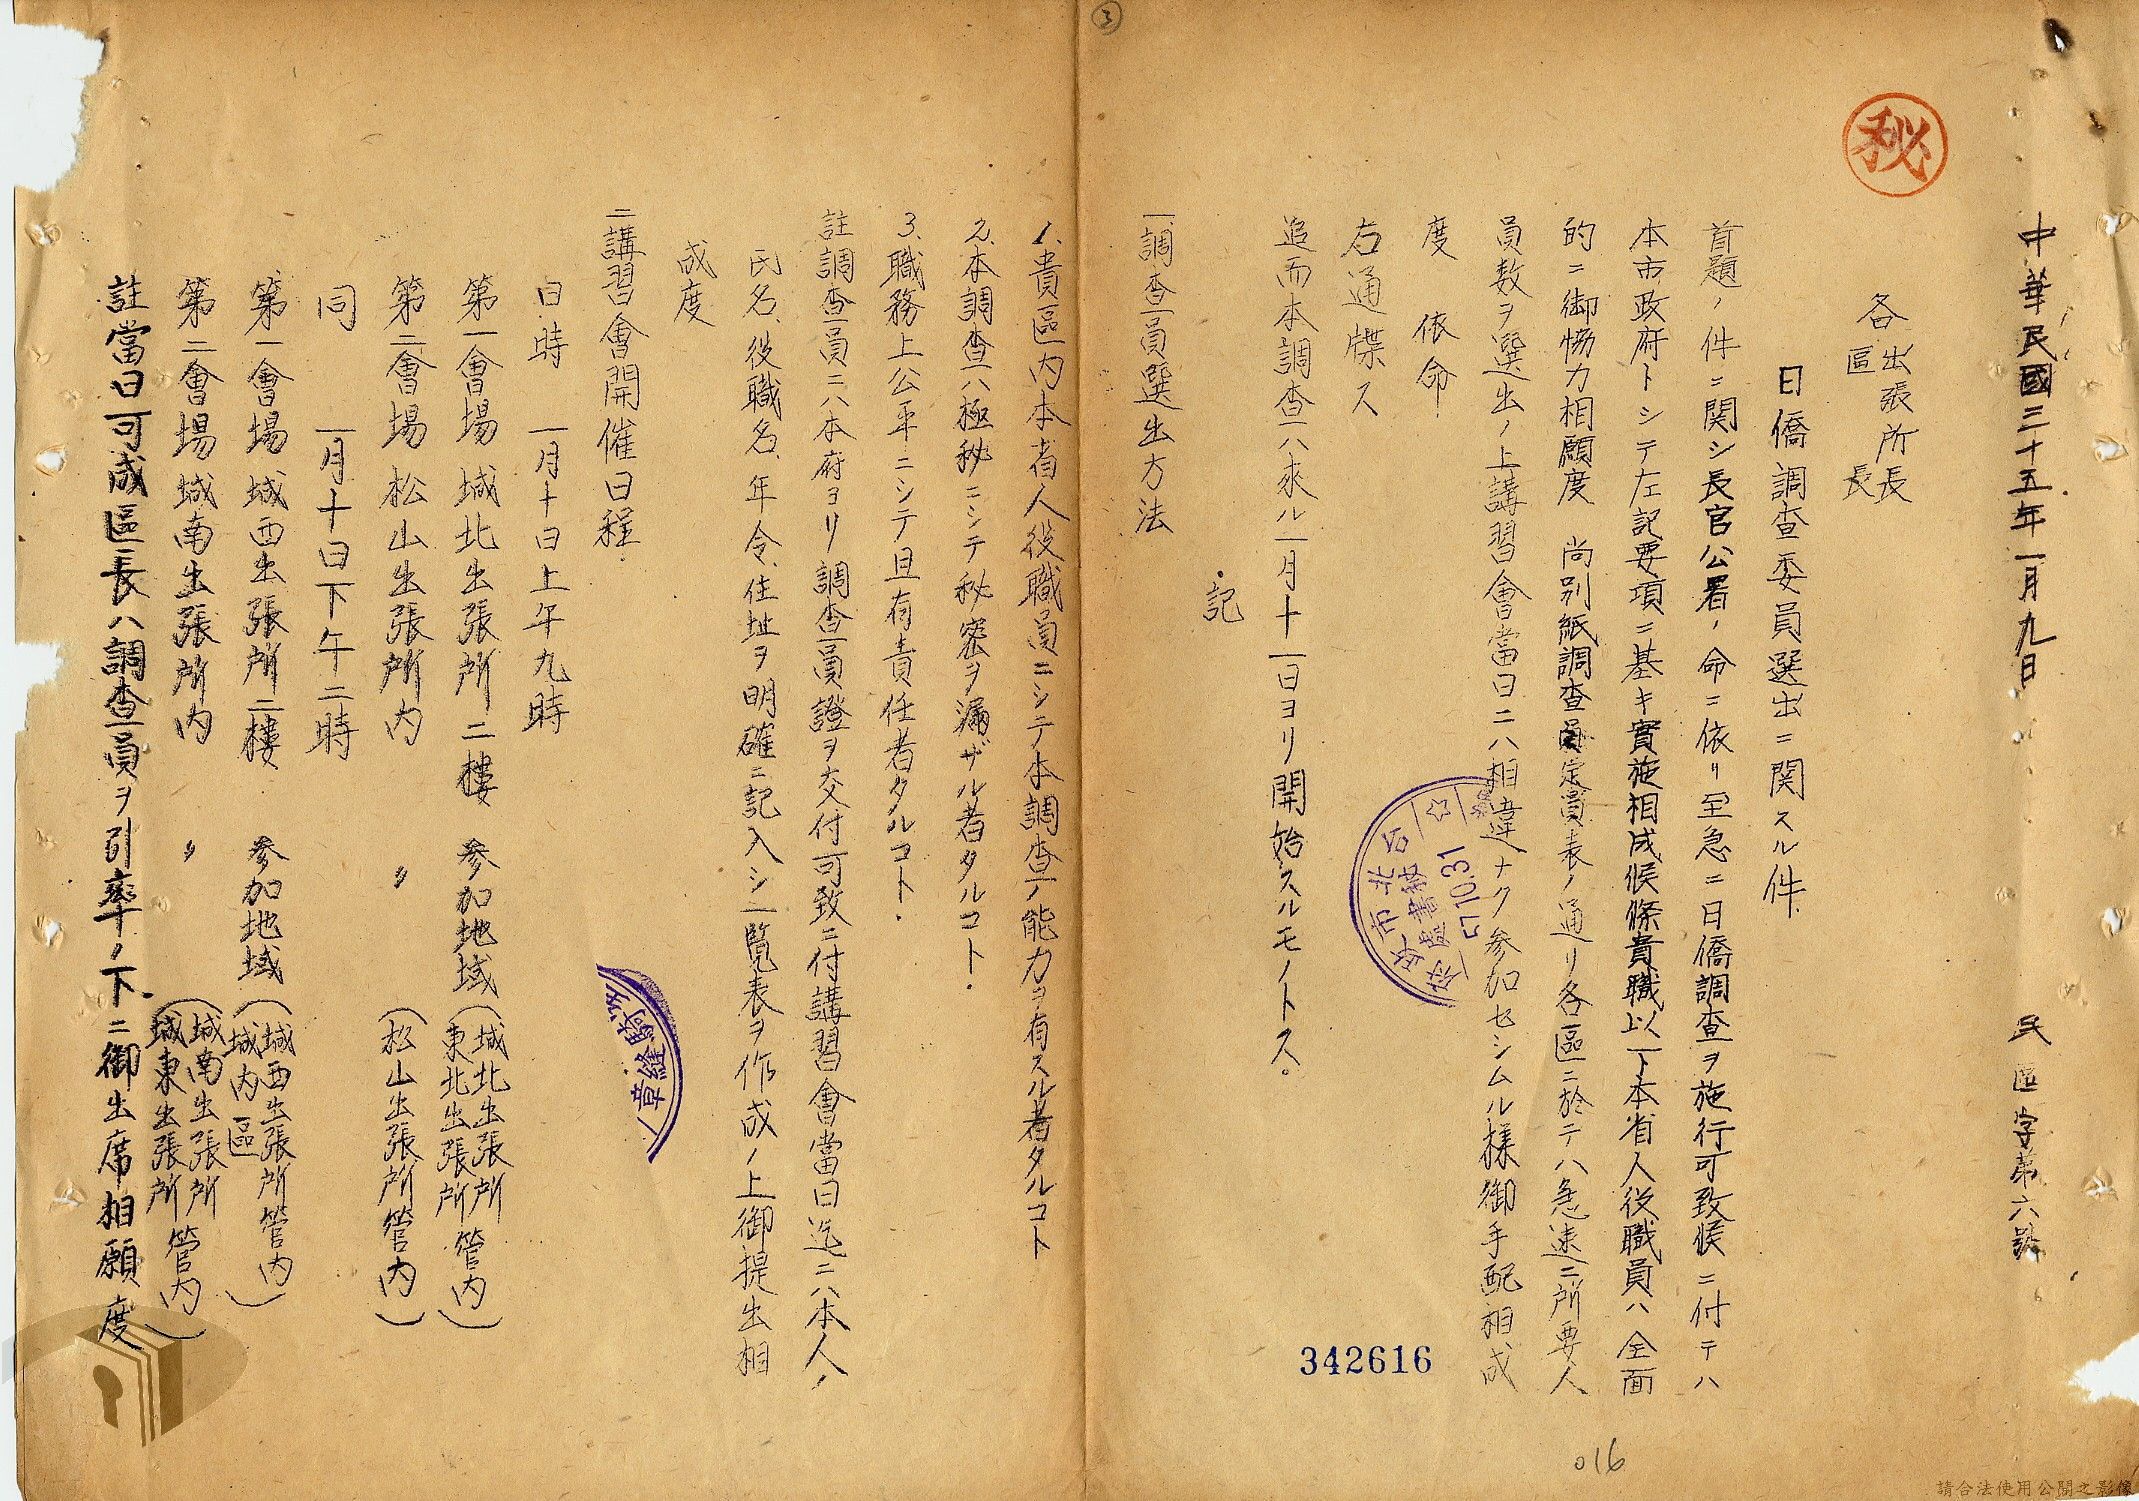 ③
秘
中華民國三十五年一月九日　民區字第六號
各出張所長
區長
日僑調查委員選出ニ関スル件
首題ノ件ニ関シ長官公署ノ命ニ依リ至急ニ日僑調查ヲ施行可致候ニ付テハ
本市政府トシテ左記要項ニ基キ實施相成候條貴職以下本省人役職員ハ全面
的ニ御協力相願度　尚別紙調查員定員表ノ通リ各區ニ於テハ急速ニ所要人
員数ヲ選出ノ上講習會當日ニハ相違ナク参加セシムル様御手配相成
度　依命
右通牒ス
追而本調查ハ來ル一月十一日ヨリ開始スルモノトス。
記
一調查員選出方法
1、貴區内本省人役職員ニシテ本調查ノ能力ヲ有スル者タルコト
2、本調查ハ極秘ニシテ秘密ヲ漏ザル者タルコト．
3、職務上公平ニシテ且有責任者タルコト．
註調查員ニハ本府ヨリ調查員證ヲ交付可致ニ付講習會當日迄ニハ本人ノ
氏名、役職名、年令、住址ヲ明確ニ記入シ一覧表ヲ作成ノ上御提出相
成度
二講習會開催日程．
日時　一月十日上午九時
第一會場　城北出張所二樓　参加地域（城北出張所 東北出張所 管内）
第二會場　松山出張所内　〃　（松山出張所管内）
同　一月十日下午二時
第一會場　城西出張所二樓　参加地域（城西出張所管内 城内區）
第二會場　城南出張所内　〃　（城南出張所 城東出張所 管内）
註當日可成區長ハ調查員ヲ引率ノ下ニ御出席相願度
台北市政府
秘書處
57.10.31
章縫騎
342616
016
請合法使用公開之影像